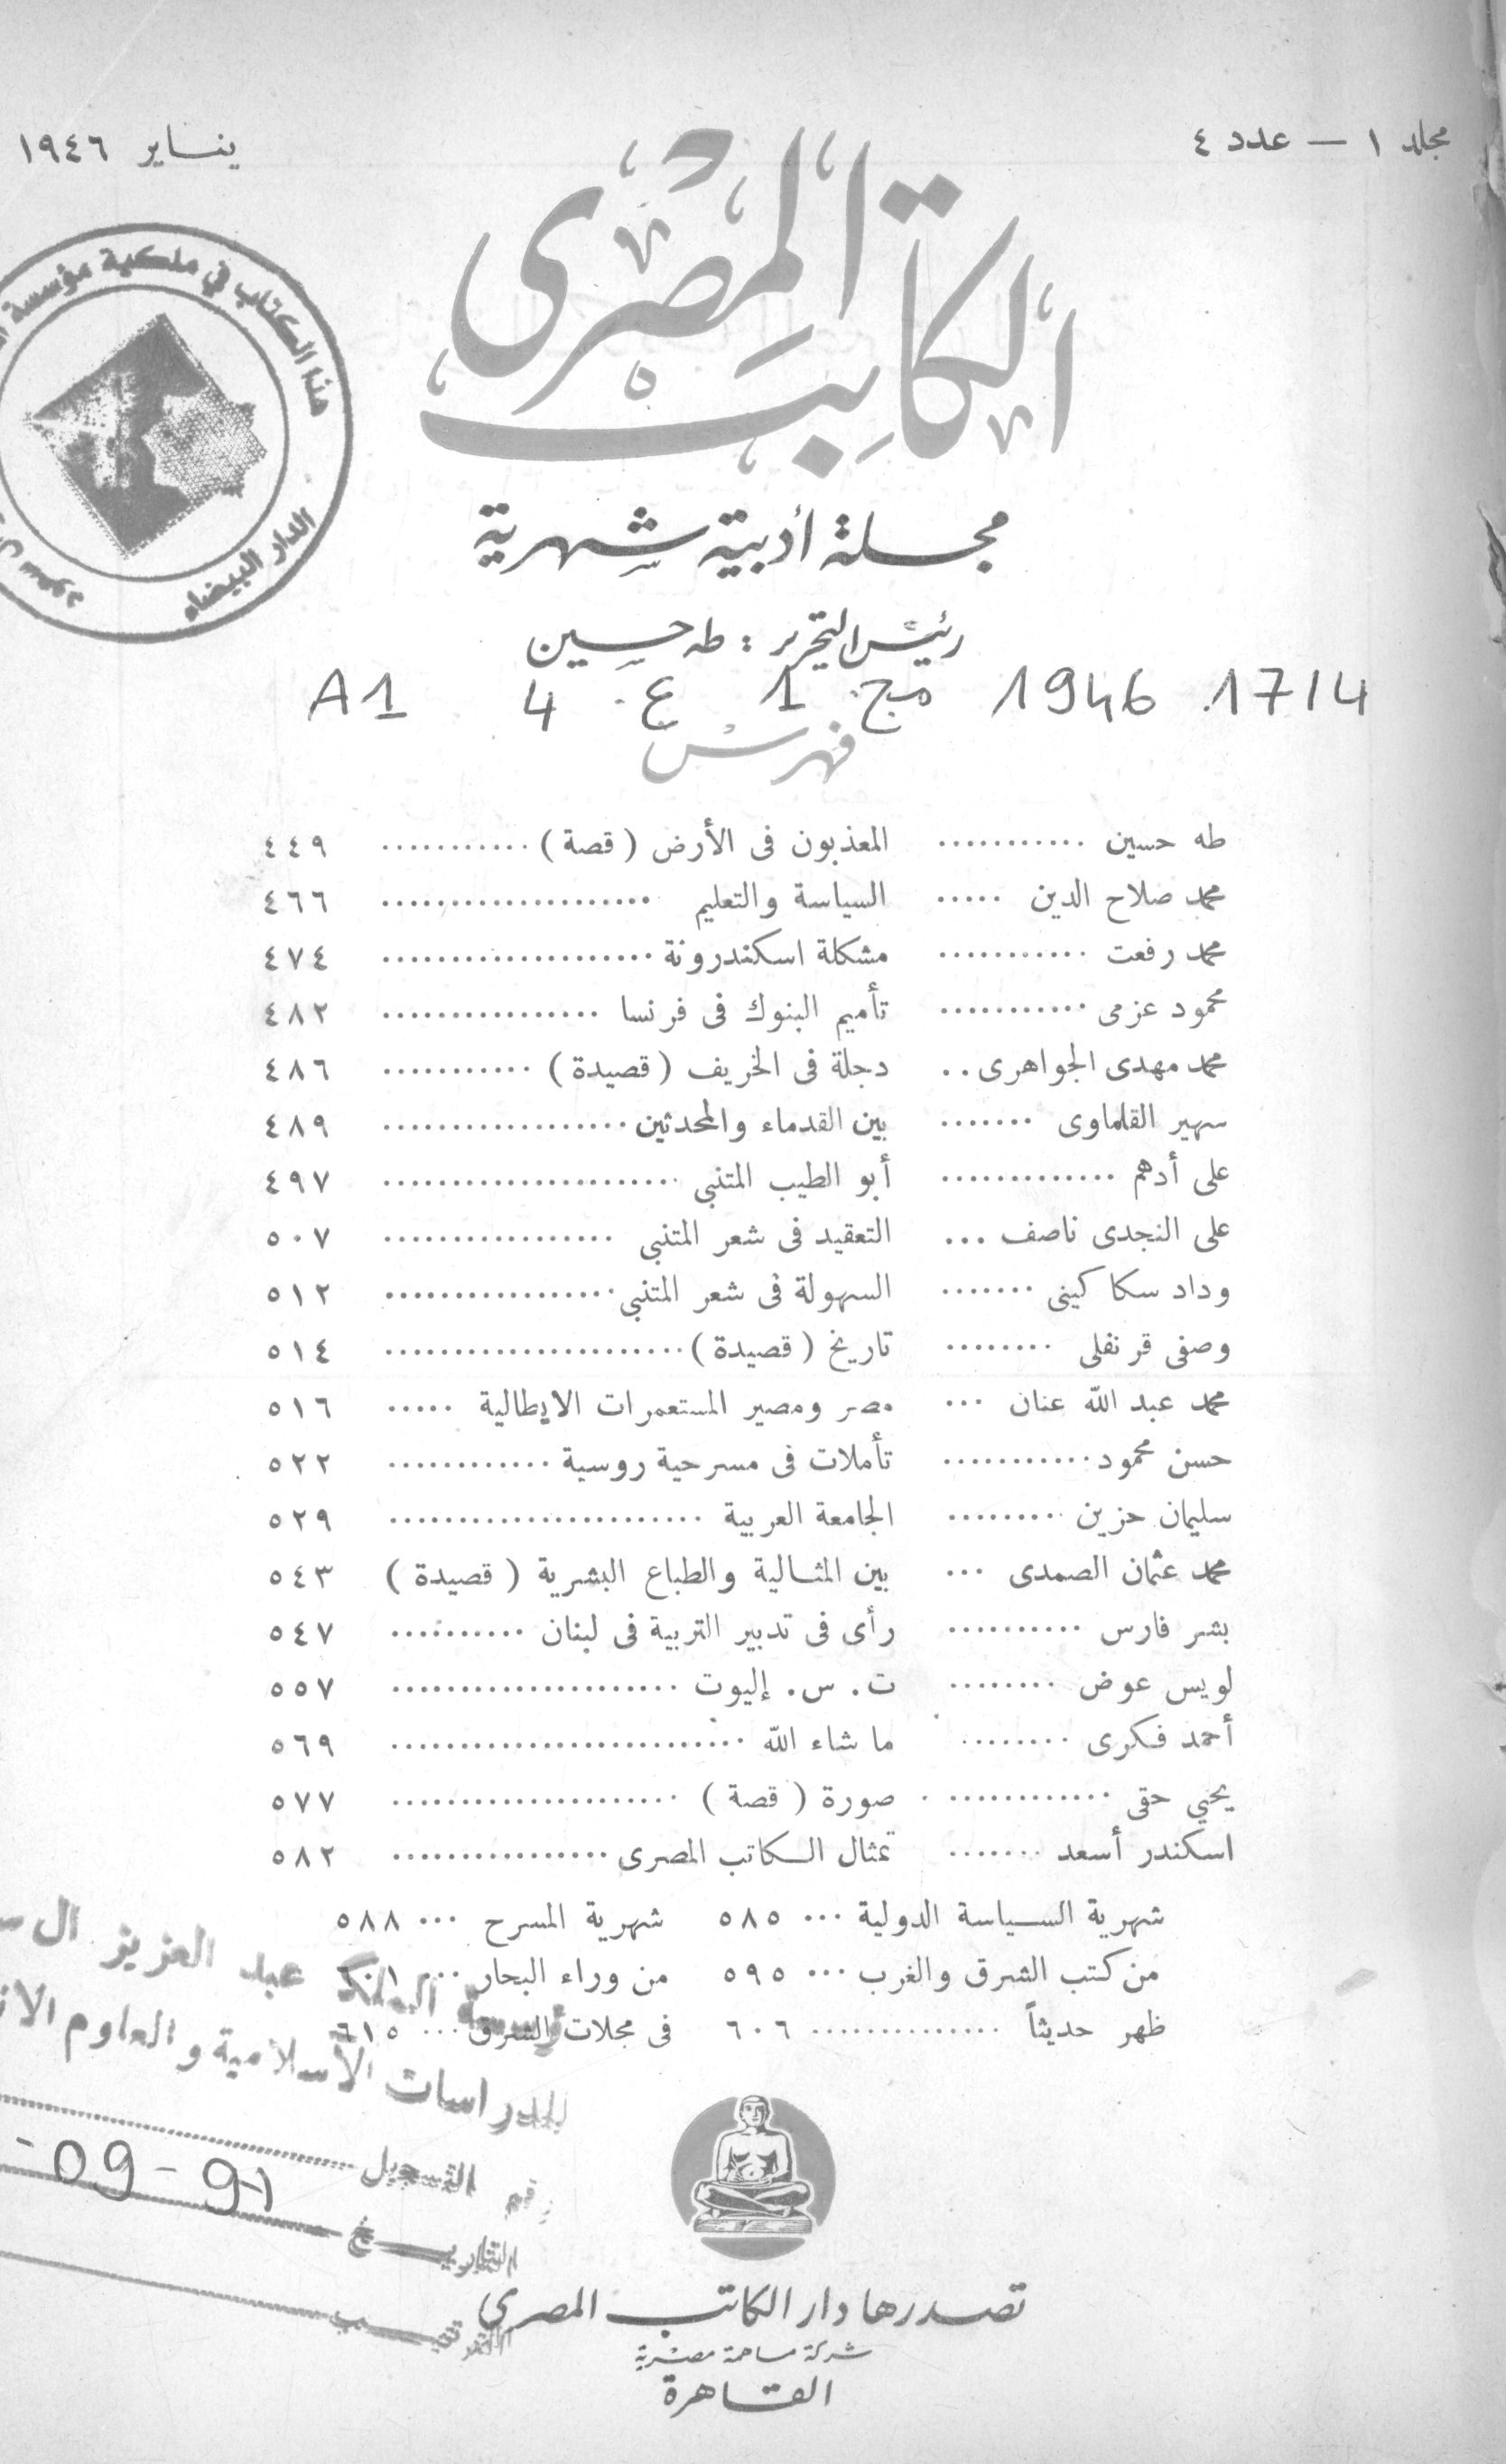 مجلد ١ — عدد ٤ يناير ١٩٤٦
الكاتب المصرى
مجلة أدبية شهرية
رئيس التحرير : طه حسين
1714 1946 مج. 1 ع. 4 A1
فهرس
طه حسين ........... المعذبون فى الأرض ( قصة ) ........... ٤٤٩
محمد صلاح الدين ..... السياسة والتعليم .................... ٤٦٦
محمد رفعت ........... مشكلة اسكندرونة .................... ٤٧٤
محمود عزمى ........... تأميم البنوك فى فرنسا ................ ٤٨٢
محمد مهدى الجواهرى .. دجلة فى الخريف ( قصيدة ) ........... ٤٨٦
سهير القلماوى ....... بين القدماء والمحدثين .................. ٤٨٩
على أدهم ............. أبو الطيب المتنبي ...................... ٤٩٧
على النجدى ناصف ... التعقيد فى شعر المتنبي ................. ٥٠٧
وداد سكاكينى ....... السهولة فى شعر المتنبي ................. ٥١٢
وصفى قرنفلى ........ تاريخ ( قصيدة ) ...................... ٥١٤
محمد عبد الله عنان ... مصر ومصير المستعمرات الايطالية ..... ٥١٦
حسن محمود ........... تأملات فى مسرحية روسية ............ ٥٢٢
سليمان حزين ......... الجامعة العربية ....................... ٥٢٩
محمد عثمان الصمدى ... بين المثالية والطباع البشرية ( قصيدة ) ٥٤٣
بشر فارس .......... رأى فى تدبير التربية فى لبنان .......... ٥٤٧
لويس عوض ........ ت . س . إليوت ..................... ٥٥٧
أحمد فكرى ........ ما شاء الله .......................... ٥٦٩
يحيي حقى ............ صورة ( قصة ) ..................... ٥٧٧
اسكندر أسعد ....... تمثال الكاتب المصرى ................ ٥٨٢
شهرية السياسة الدولية ... ٥٨٥ شهرية المسرح ... ٥٨٨
من كتب الشرق والغرب ... ٥٩٥ من وراء البحار ... ٦٠١
ظهر حديثاً .............. ٦٠٦ فى مجلات الشرق ... ٦١٥
تصدرها دار الكاتب المصرى
شركة مساهمة مصرية
القاهرة
هذا الكتاب في ملكية مؤسسة
الدار البيضاء
مؤسسة الملك عبد العزيز ال
للدراسات الاسلامية و العلوم
رقم التسجيل
التاريخ
الترتيب